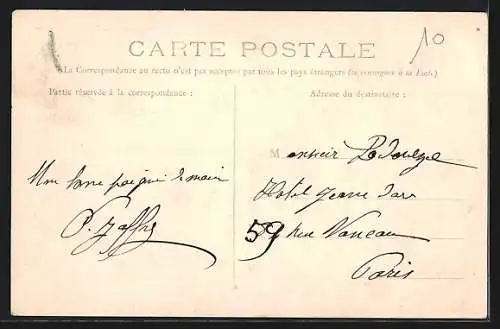 10
CARTE POSTALE
(La Correspondance au recto n'est pas acceptée par tous les pays étrangers (Se renseigner à la Poste)
Partie réservée à la correspondance :
Adresse du destinataire :
Monsieur
Une bonne poignée de main
Hotel Jeanne d'arc
P. Jaffré
59 Rue Vaneau
Paris